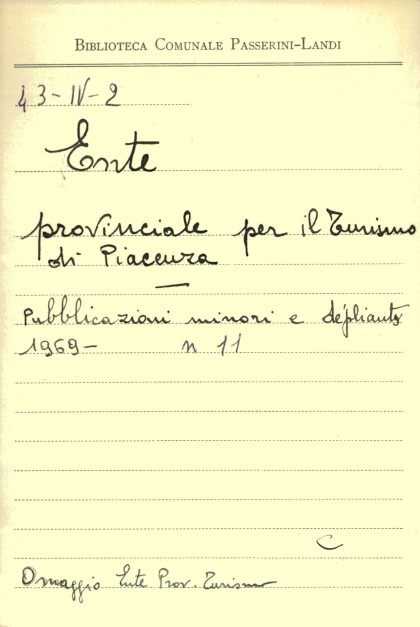 BIBLIOTECA COMUNALE PASSERINI-LANDI
43-IV-2
Ente
provinciale per il Turismo
di Piacenza
Pubblicazioni minori e dépliants
1969- n 11
C
Omaggio Ente Prov. Turismo